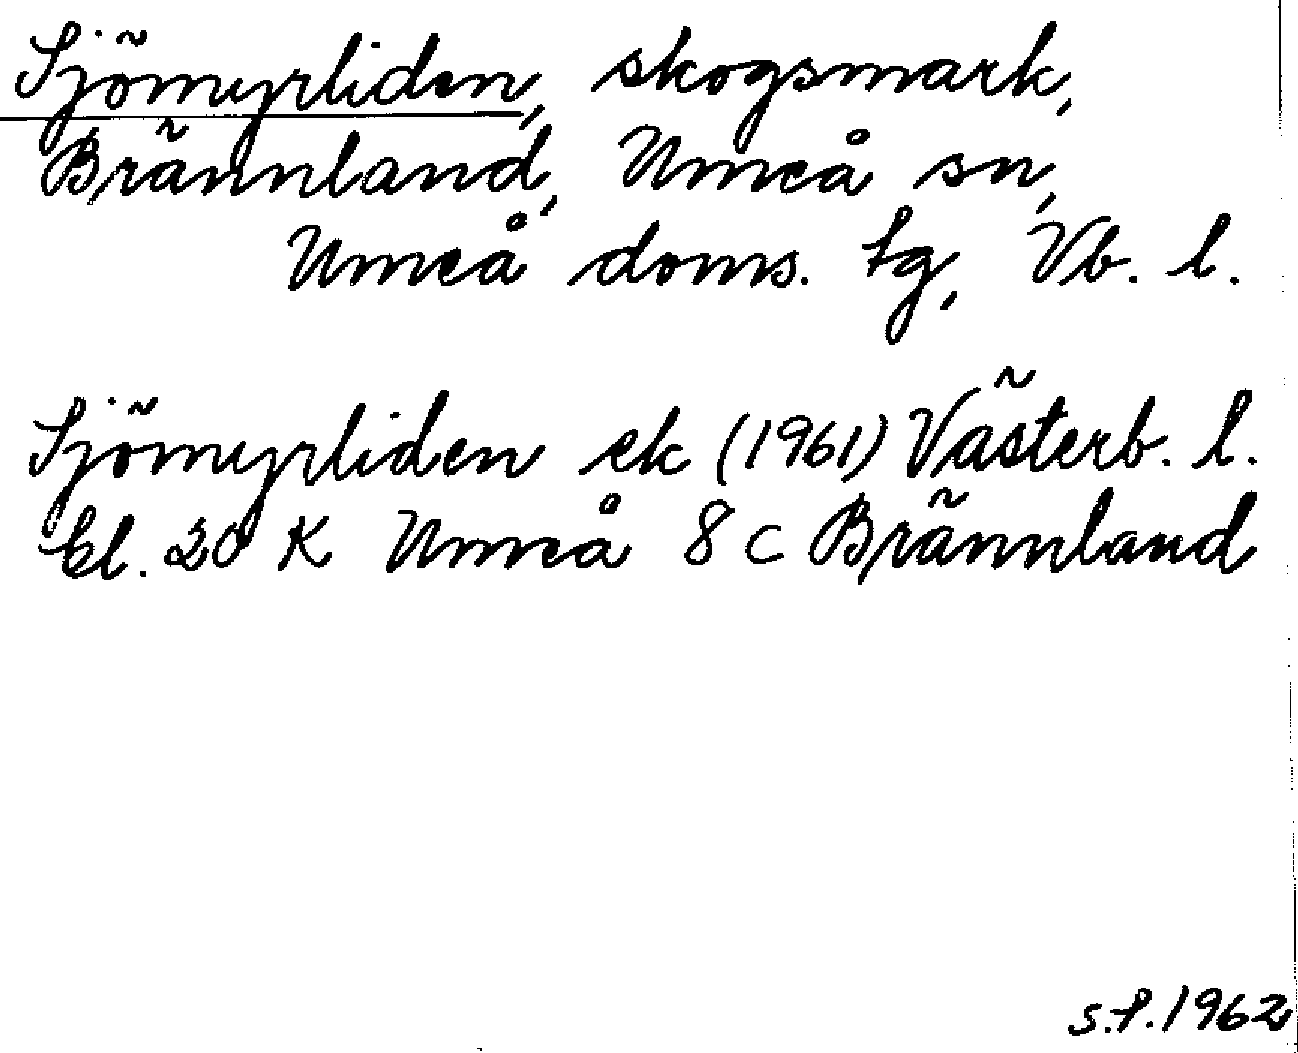 Sjömyrliden, skogsmark,
Brännland, Umeå sn,
Umeå doms. tg, Vb. l.
Sjömyrliden ek (1961) Västerb. l.
bl. 20 K Umeå 8 c Brännland
s.t. 1962